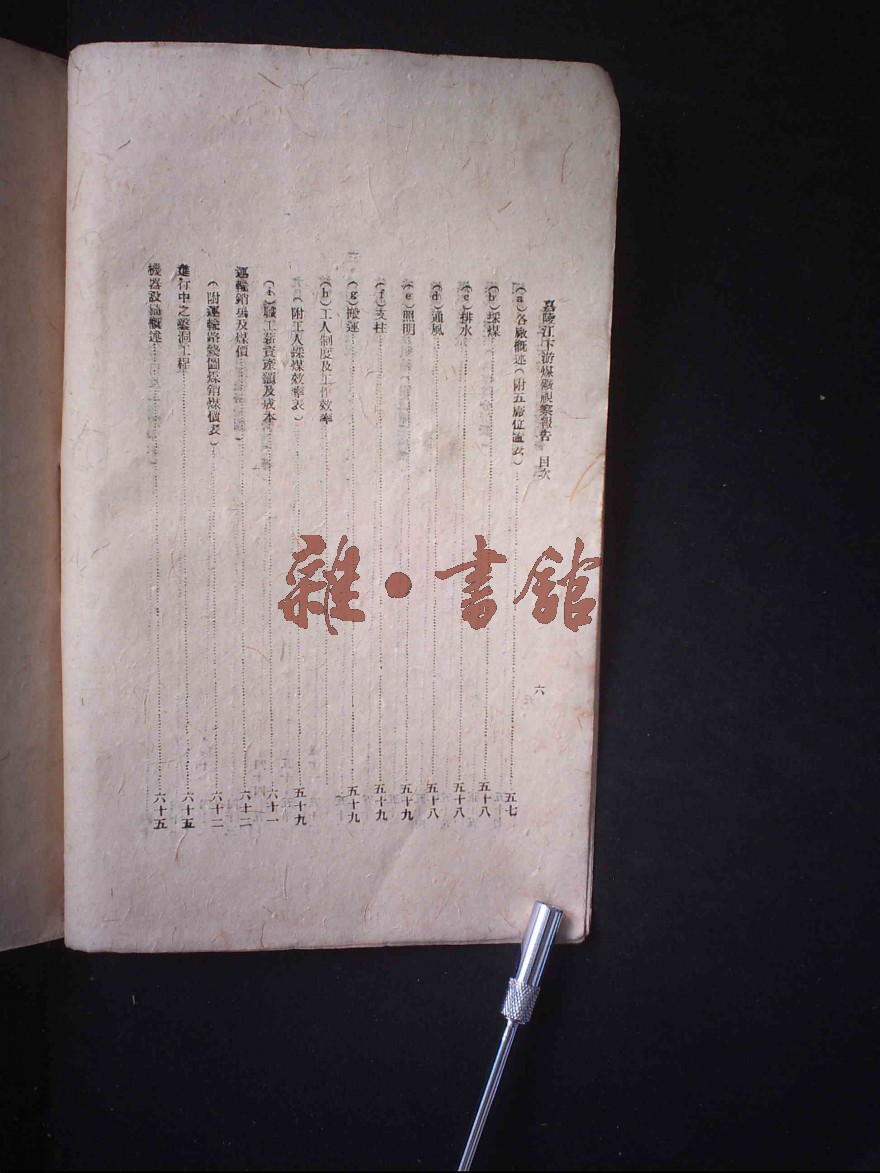 嘉陵江下游煤礦視察報告　目次
六
(a)各廠概述(附五廠位置表)……五七
(b)採煤……五十八
(c)排水……五十八
(d)通風……五十八
(e)照明……五十九
(f)支柱……五十九
(g)搬運……五十九
(h)工人制度及工作效率……
(附工人採煤效率表)……五十九
(i)職工薪資產額及成本……六十一
運輸銷場及煤價……六十二
(附運輸路綫圖煤銷煤價表)……六十二
進行中之鑿洞工程……六十五
機器設備概述……六十五
雜·書館